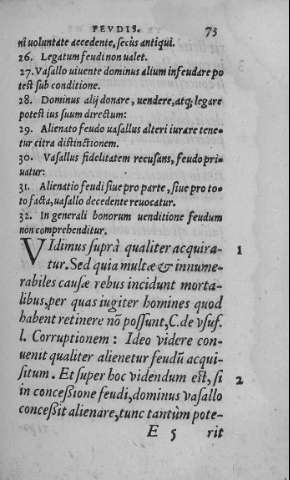 FEVDIS. 73
ni voluntate accedente, secùs antiqui.
26. Legatum feudi non ualet.
27. Vasallo uiuente dominus alium infeudare po
test sub conditione.
28. Dominus alij donare, uendere, atq; legare
potest ius suum directum:
29. Alienato feudo uasallus alteri iurare tene-
tur citra distinctionem.
30. Vasallus fidelitatem recusans, feudo pri-
uatur:
31. Alienatio feudi siue pro parte, siue pro to-
to facta, uasallo decedente reuocatur.
32. In generali bonorum uenditione feudum
non comprehenditur.
VIdimus suprà qualiter acquira- 1
tur. Sed quia multæ & innume-
rabiles causæ rebus incidunt morta-
libus, per quas iugiter homines quod
habent retinere nõ possunt, C. de vsuf.
l. Corruptionem: Ideo videre con-
uenit qualiter alienetur feudũ acqui-
situm. Et super hoc videndum est, si 2
in concessione feudi, dominus vasallo
concessit alienare, tunc tantùm pote-
E 5 rit